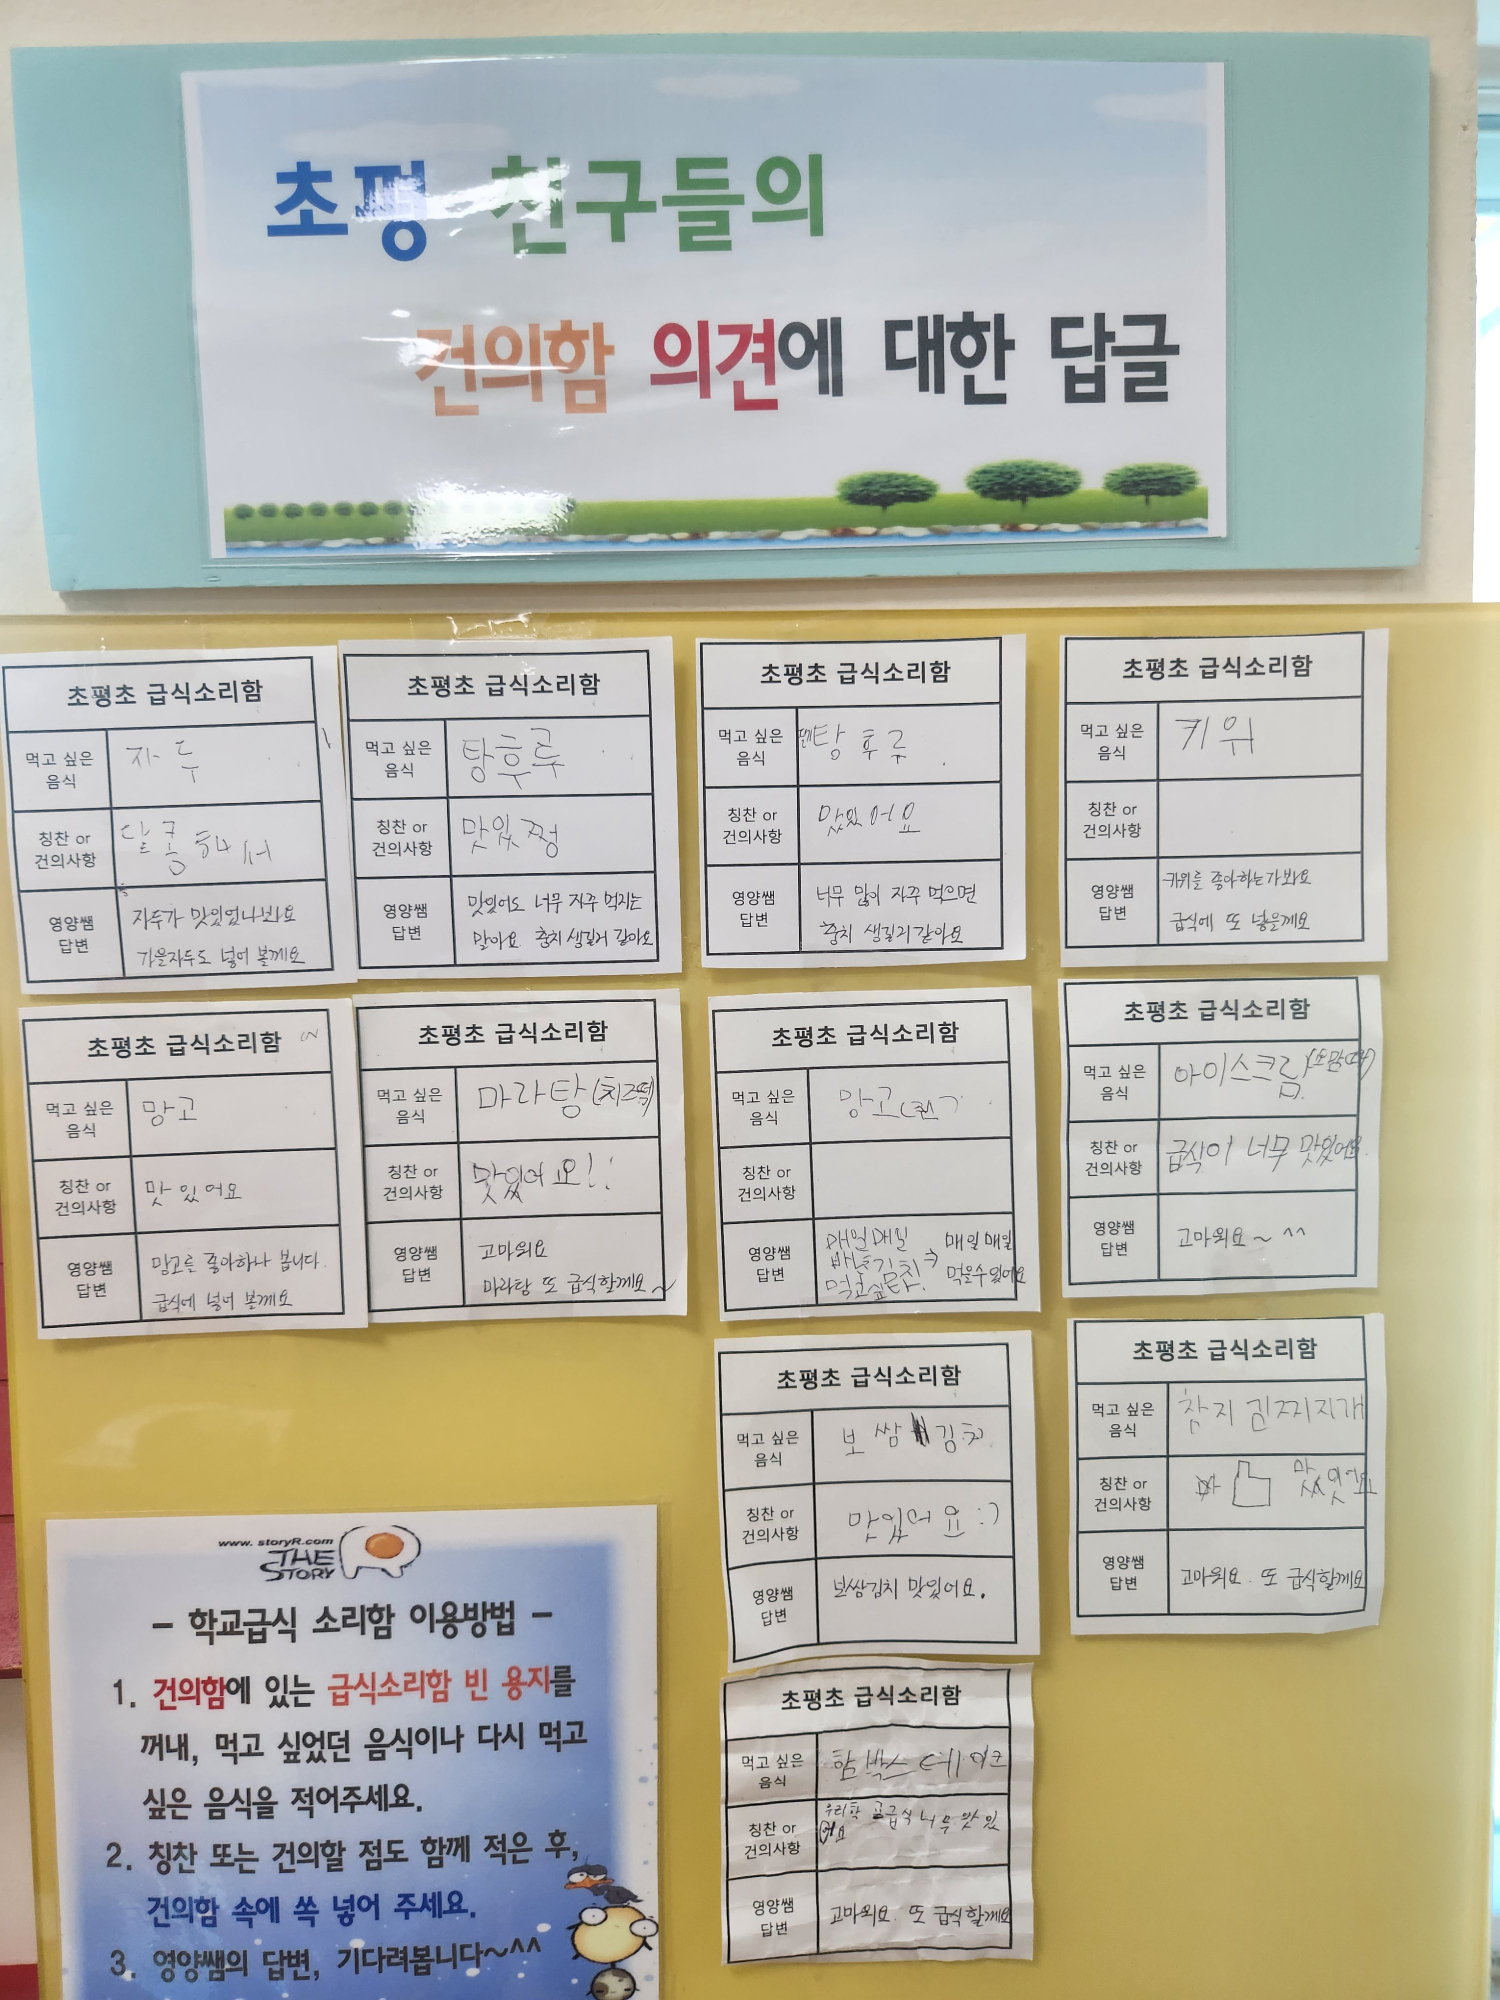 초평 친구들의
건의함 의견에 대한 답글
초평초 급식소리함
먹고 싶은
음식
자두
칭찬 or
건의사항
달콤해서
영양쌤
답변
자두가 맛있었나봐요
가을자두도 넣어 볼께요
초평초 급식소리함
먹고 싶은
음식
탕후루
칭찬 or
건의사항
맛있쪙
영양쌤
답변
맛있어도 너무 자주 먹지는
말아요 충치 생길거 같아요
초평초 급식소리함
먹고 싶은
음식
탕후루
칭찬 or
건의사항
맛있어요
영양쌤
답변
너무 많이 자주 먹으면
충치 생길거 같아요
초평초 급식소리함
먹고 싶은
음식
키위
칭찬 or
건의사항
영양쌤
답변
키위를 좋아하는가봐요
급식에 또 넣을께요
초평초 급식소리함
먹고 싶은
음식
망고
칭찬 or
건의사항
맛있어요
영양쌤
답변
망고를 좋아하나 봅니다.
급식에 넣어 볼께요
초평초 급식소리함
먹고 싶은
음식
마라탕 (치즈떡)
칭찬 or
건의사항
맛있어요!!
영양쌤
답변
고마워요
마라탕 또 급식할께요~
초평초 급식소리함
먹고 싶은
음식
망고
칭찬 or
건의사항
영양쌤
답변
매일매일
배추김치 →
먹고싶다.
매일매일
먹을수있어요
초평초 급식소리함
먹고 싶은
음식
아이스크림
칭찬 or
건의사항
급식이 너무 맛있어요
영양쌤
답변
고마워요~ ^^
초평초 급식소리함
먹고 싶은
음식
보쌈 김치
칭찬 or
건의사항
맛있어요 :)
영양쌤
답변
보쌈김치 맛있어요.
초평초 급식소리함
먹고 싶은
음식
참치 김찌지개
칭찬 or
건의사항
맛있어요
영양쌤
답변
고마워요. 또 급식할께요
초평초 급식소리함
먹고 싶은
음식
함박스테이크
칭찬 or
건의사항
우리학교급식 너무 맛있
어요
영양쌤
답변
고마워요. 또 급식할께요
www.storyR.com
THE STORY
- 학교급식 소리함 이용방법 -
1. 건의함에 있는 급식소리함 빈 용지를
꺼내, 먹고 싶었던 음식이나 다시 먹고
싶은 음식을 적어주세요.
2. 칭찬 또는 건의할 점도 함께 적은 후,
건의함 속에 쏙 넣어 주세요.
3. 영양쌤의 답변, 기다려봅니다~^^